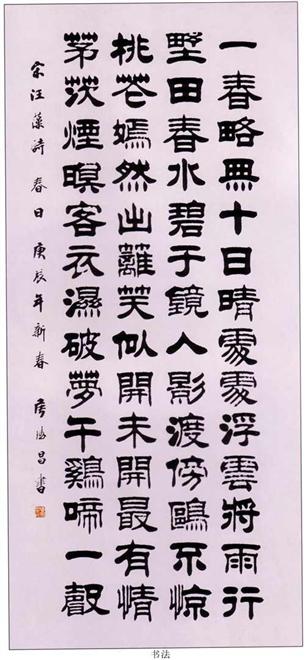 一春略無十日晴處處浮雲將雨行
野田春水碧于鏡人影渡傍鷗不惊
桃花嫣然出籬笑似開未開最有情
茅茨煙暝客衣濕破夢午鷄啼一聲
宋汪藻詩 春日 庚辰年新春 房昌書
书法